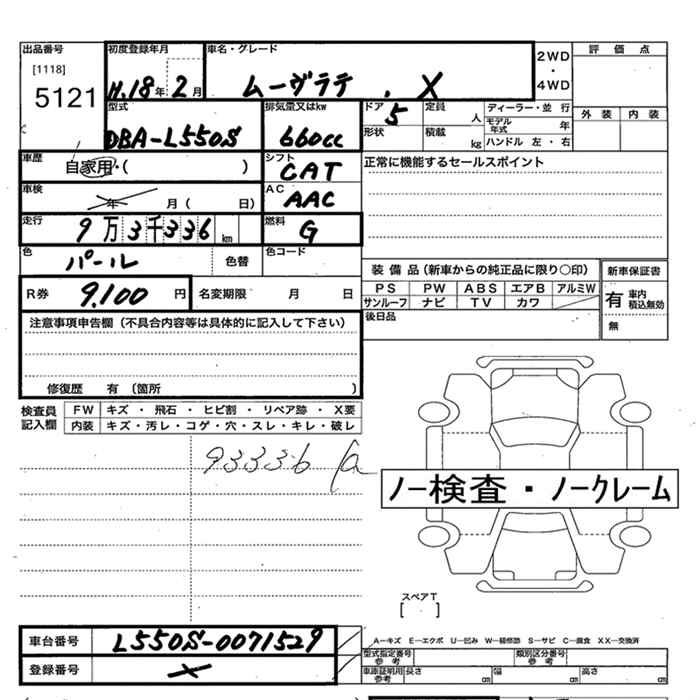 出品番号 初度登録年月 車名・グレード 2WD ・ 4WD 評価点
[1118]
5121 H.18年2月 ムーヴラテ . X
外装 内装
型式 排気量又はkw ドア 5 定員 人 ディーラー・並行
DBA-L550S 660cc 形状 積載 kg モデル年式 年
ハンドル 左・右
車歴 自家用・( ) シフト CAT 正常に機能するセールスポイント
車検 年 月( 日) AC AAC
走行 9万3千336km 燃料 G
色 パール 色替 色コード
装備品(新車からの純正品に限り○印) 新車保証書
R券 9,100円 名変期限 月 日 PS PW ABS エアB アルミW 有 車内積込無効
サンルーフ ナビ TV カワ
注意事項申告欄(不具合内容等は具体的に記入して下さい) 後日品 無
修復歴 有(箇所 )
検査員記入欄 FW キズ・飛石・ヒビ割・リペア跡・X要
内装 キズ・汚レ・コゲ・穴・スレ・キレ・破レ
93336
ノー検査・ノークレーム
スペアT
[ ]
車台番号 L550S-0071529 A-キズ E-エクボ U-凹み W-補修跡 S-サビ C-腐食 XX-交換済
型式指定番号 参考 類別区分番号 参考
登録番号 X 車庫証明用 参考 長さ cm 幅 cm 高さ cm